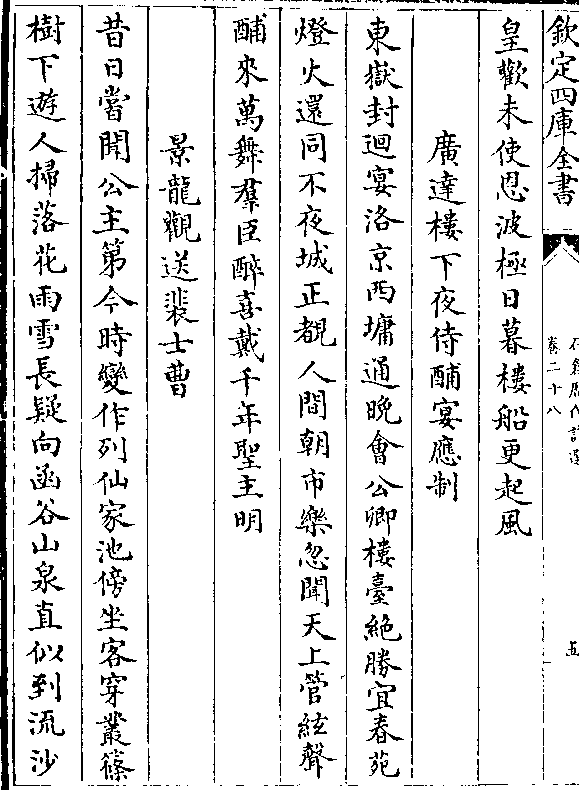 欽定四庫全書
卷二十八
五
皇歡未使恩波極日暮樓船更起風
廣達樓下夜侍酺宴應制
東嶽封迴宴洛京西墉通晚會公卿樓臺絶勝宜春苑
燈火還同不夜城正覩人間朝市樂忽聞天上管絃聲
酺來萬舞羣臣醉喜戴千年聖主明
景龍觀送裴士曹
昔日嘗聞公主第今時變作列仙家池傍坐客穿叢篠
樹下遊人掃落花雨雪長疑向函谷山泉直似到流沙